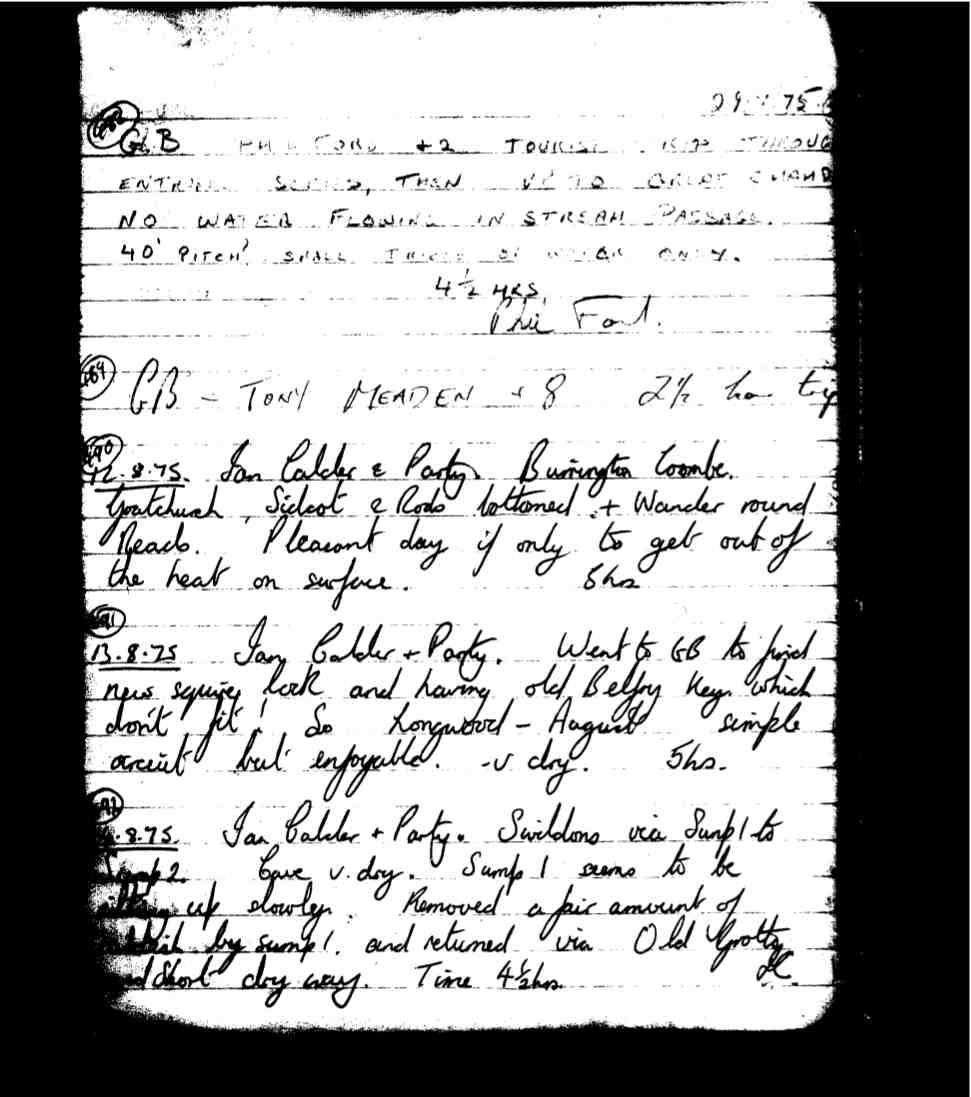 29 75
G.B PHIL FORD +2 TOURIST TRIP THROUG
ENTRANCE SERIES, THEN UP TO GREAT CHAMB
NO WATER FLOWING IN STREAM PASSAGE.
40' PITCH, SMALL TRICKLE OF WATER ONLY.
4½ HRS.
Phil Ford.
689 GB - TONY MEADEN + 8 2½ hour trip
690
12.8.75. Ian Calder & Party. Burrington Coombe.
Goatchurch, Sidcot & Rods bottomed + Wander round
Reads. Pleasant day if only to get out of
the heat on surface. 5hrs
691
13.8.75 Ian Calder + Party. Went to GB to find
new squire lock and having old Belfry Keys which
don't fit! So Longwood - August simple
circuit but enjoyable. -v dry. 5hrs.
.8.75. Ian Calder + Party. Swildons via Sump 1 to
Sump 2. Cave v. dry. Sump 1 seems to be
silting up slowly. Removed a fair amount of
rubbish by sump 1. and returned via Old Grotto
and Short dry way. Time 4½hrs. IC.